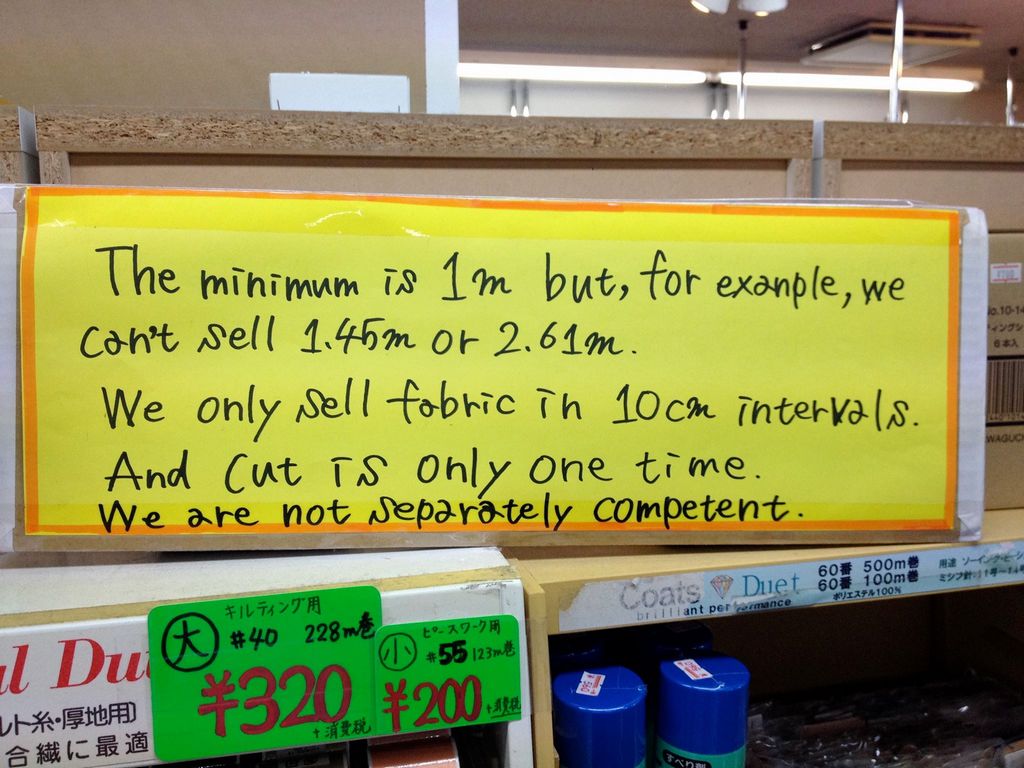 The minimum is 1m but, for exanple, we
can't sell 1.45m or 2.61m.
We only sell fabric in 10cm intervals.
And cut is only one time.
We are not separately competent.
No.10-14
6本入
WAGUC
Coats Duet
brilliant per mance
60番 500m巻
60番 100m巻
ポリエステル100%
用途 ソーイング・ミシン
ミシン針:11号～14
l Du
ルト糸・厚地用)
合繊に最適
大 キルティング用
#40 228m巻
¥320
+消費税
小 ピースワーク用
#55 123m巻
¥200
+消費税
すべり剤